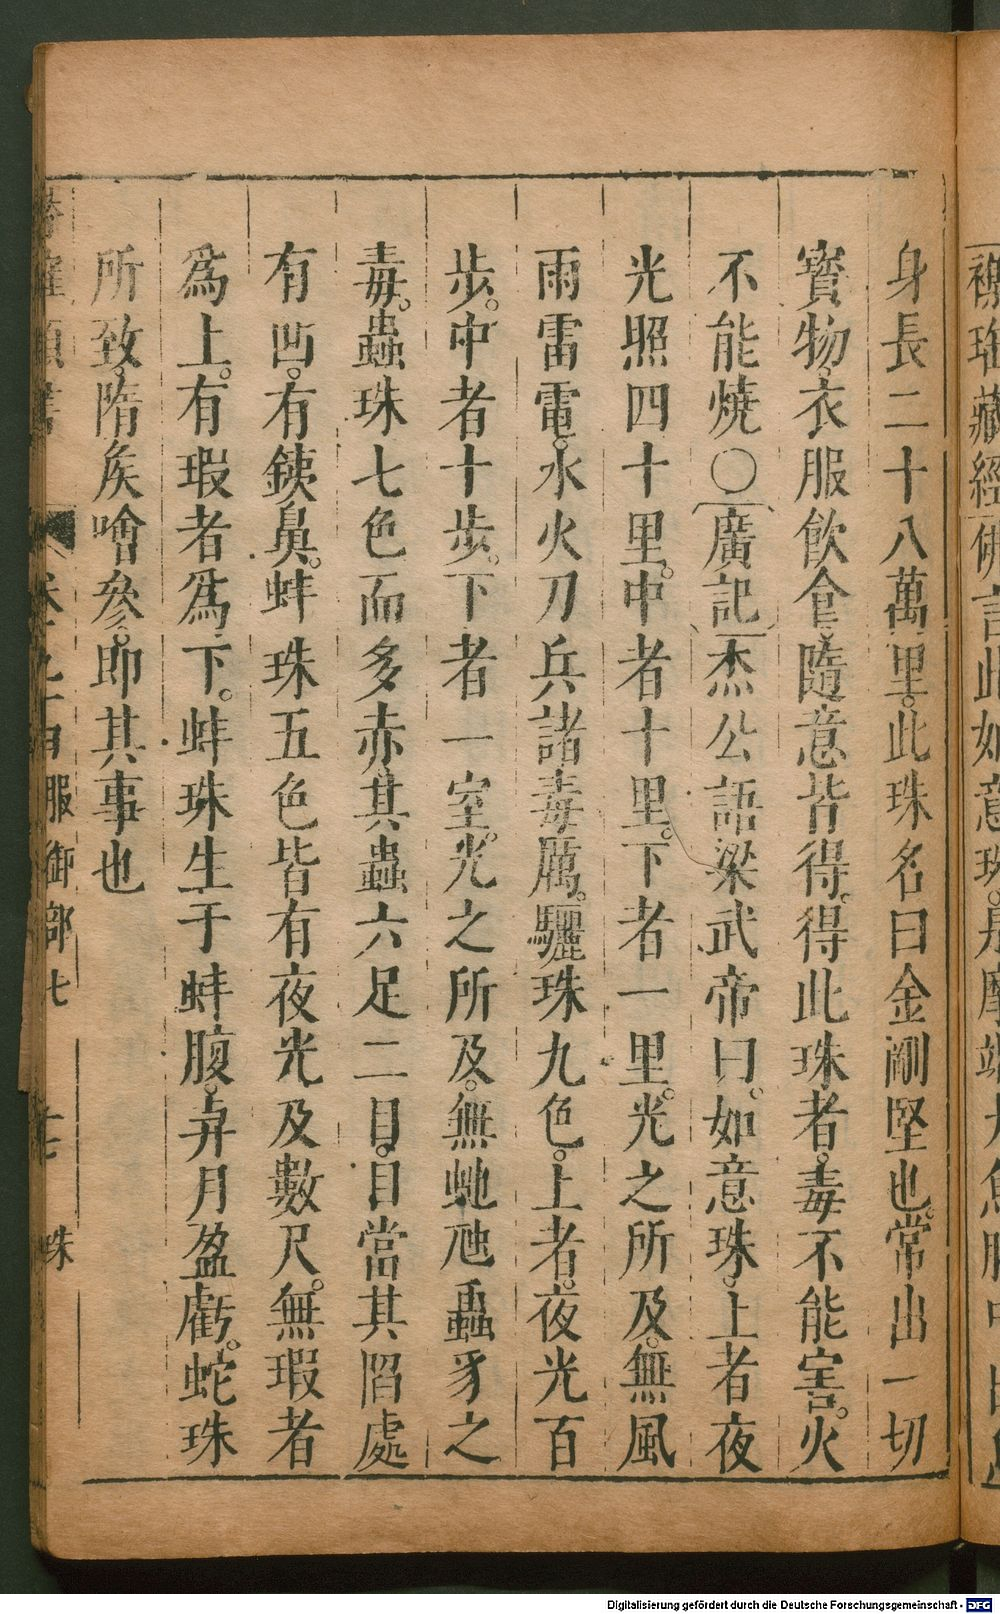 襍瑜藏經佛言此如意珠。是摩竭大魚腦中出
身長二十八萬里。此珠名曰金剛堅也。常出一切
寳物、衣服飲食、隨意皆得。得此珠者。毒不能害。火
不能燒〇廣記杰公語梁武帝曰。如意珠。上者夜
光照四十里。中者十里。下者一里。光之所及。無風
雨雷電。水火刀兵諸毒厲。驪珠九色。上者。夜光百
步。中者十步。下者一室。光之所及。無虵虺蟲豸之
毒。蟲珠七色而多赤。其蟲六足二目。目當其陷處
有凹。有銕鼻。蚌珠五色皆有夜光及數尺。無瑕者
為上。有瑕者為下。蚌珠生于蚌腹。與月盈虧。蛇珠
所致、隋矦噲參。即其事也
服御部七
珠
Digitalisierung gefördert durch die Deutsche Forschungsgemeinschaft - DFG